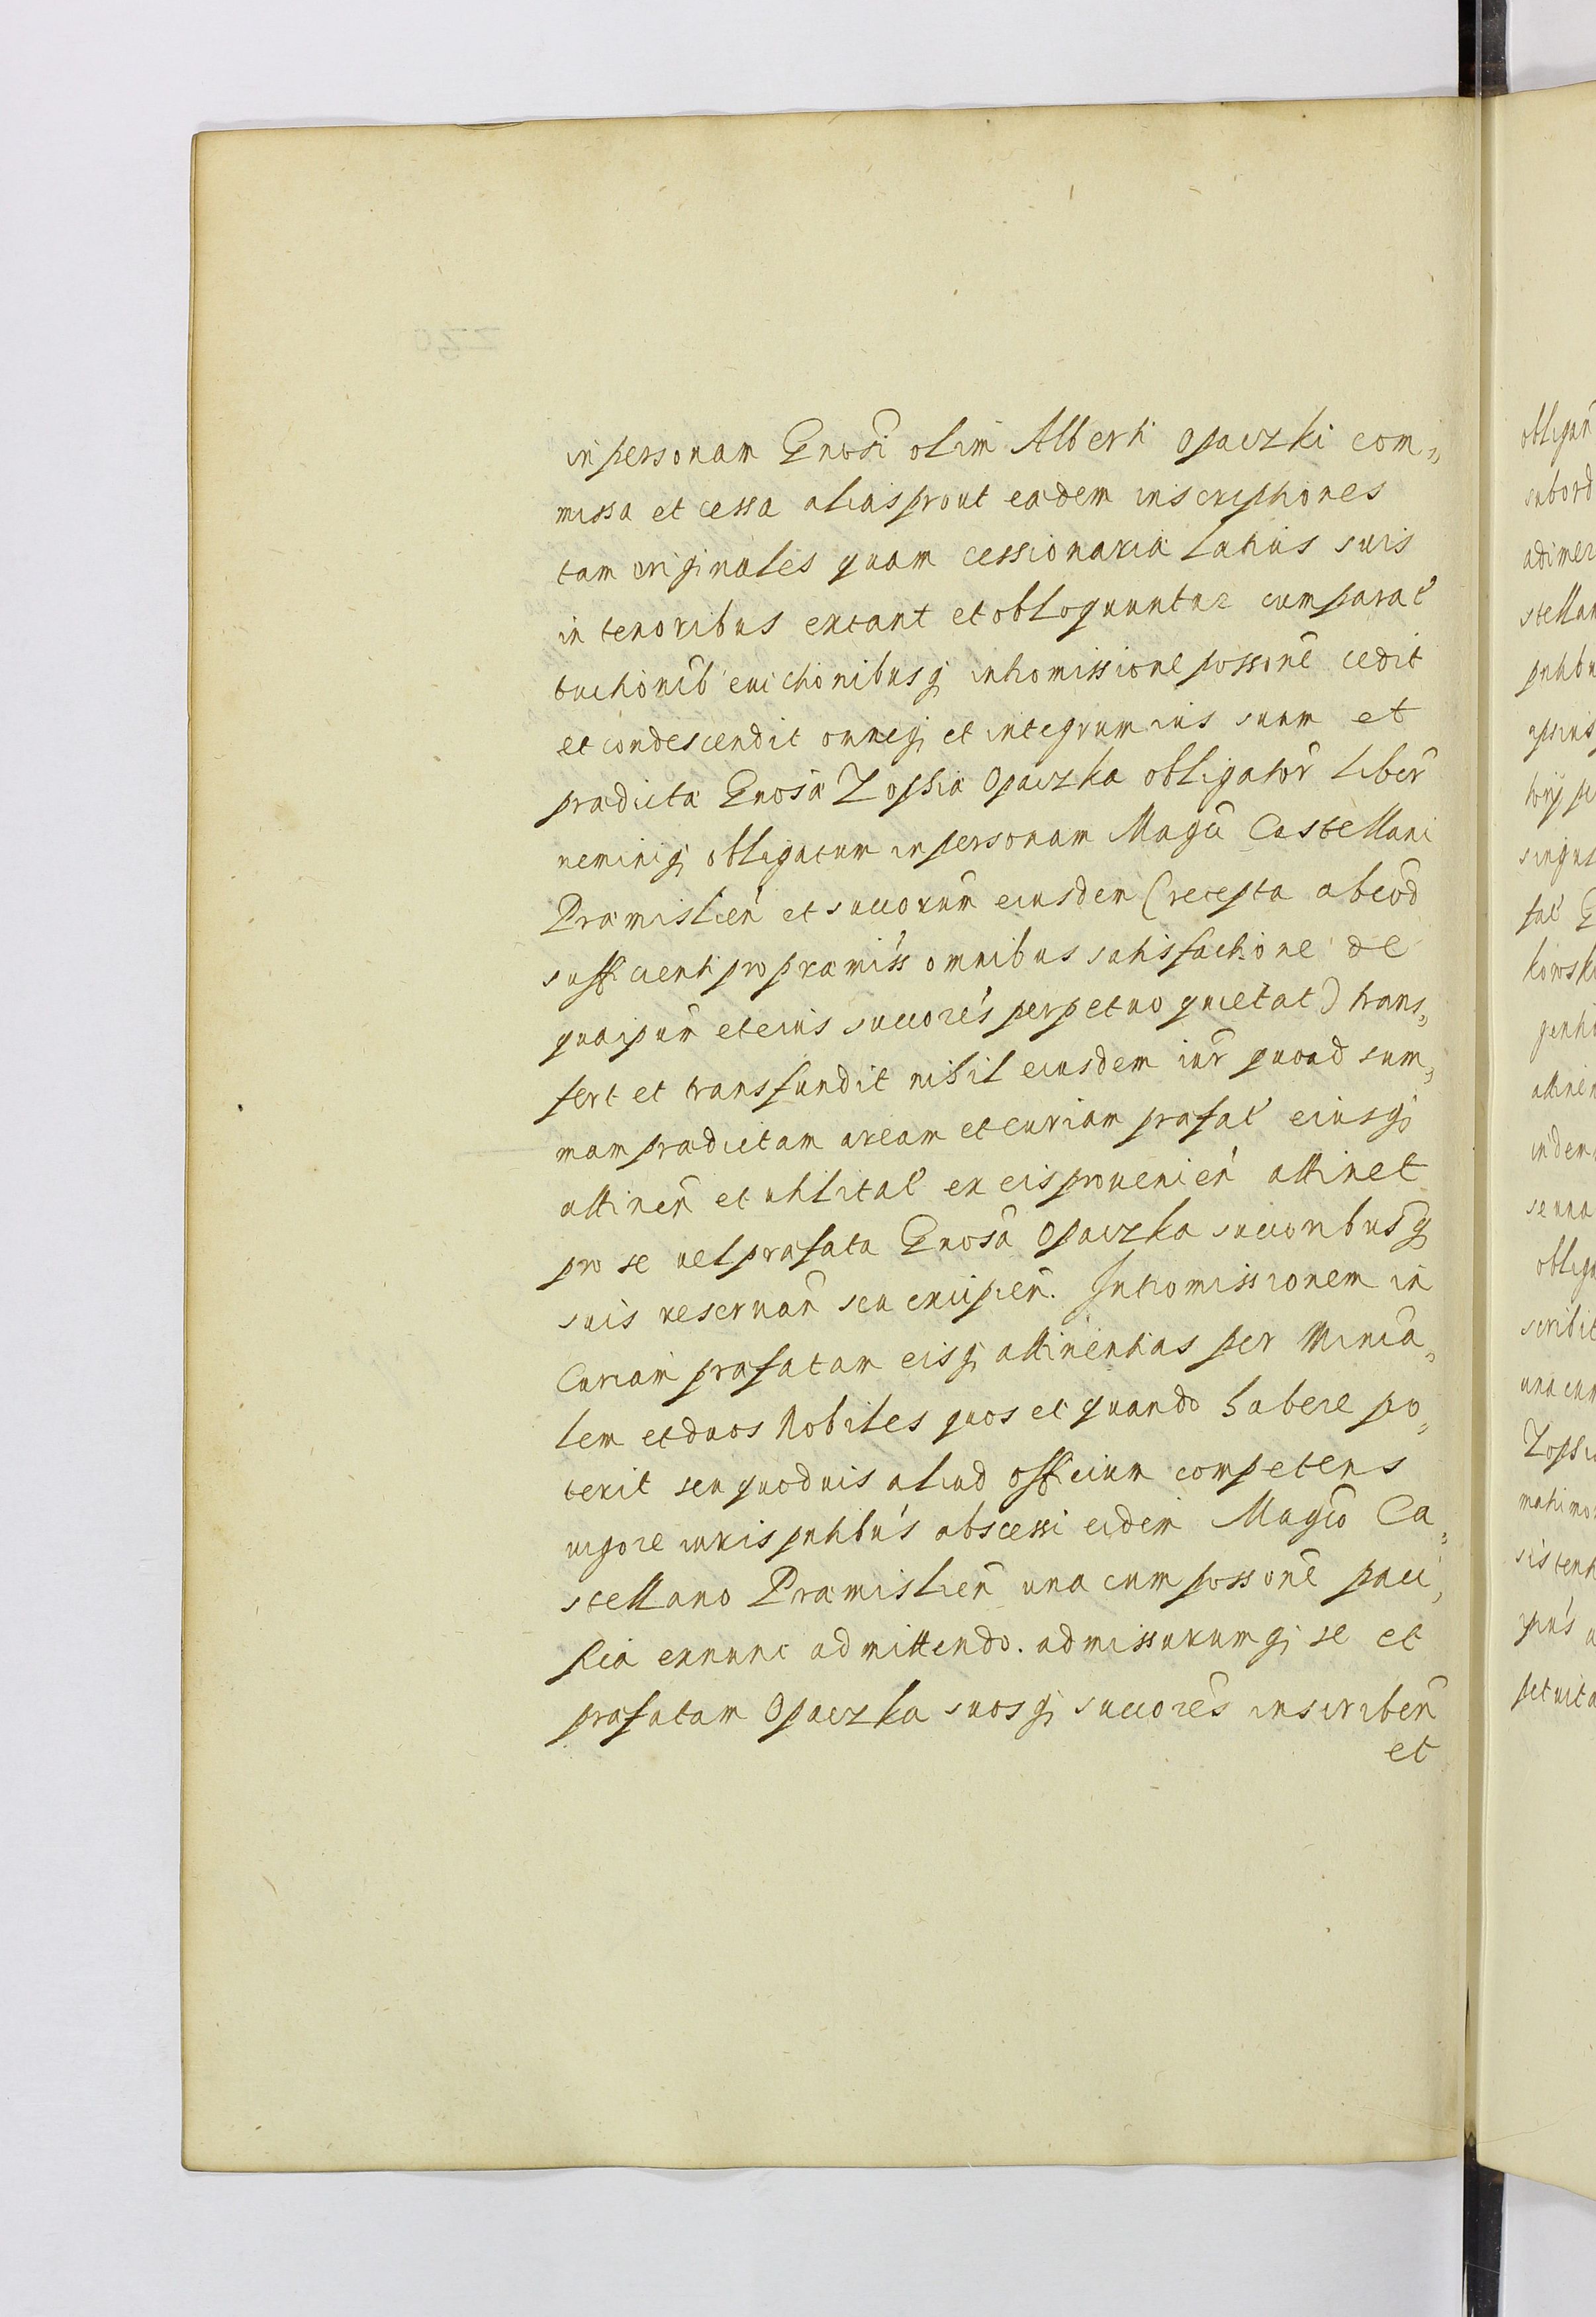 in personam Gnosi olim Alberti Opaczki com„
missa et cessa alias prout eadem inscriptiones
tam originales quam cessionaria latius suis
in tenoribus extant et obloquuntur cum parat
tuitionib euictionibusq intromissione possone cedit
et condescendit omneq et integrum ius suum et
prædicta Gnosa Zophia Opaczka obligator liber
neminiq obligatum in personam Magci Castellani
Præmislien et succorum eiusdem (recepta ab eod
sufficienti pro præmiss omnibus satisfactione de
qua ipsum et eius succores perpetuo quietat) trans„
fert et transfundit nihil eiusdem iur quoad sum„
mam prædictam aream et curiam præfat eiusq
attinen et utilitat ex eis prouenien attinet
pro se uel præfata Gnosa Opaczka succoribusq
suis reseruan seu excipien. Intromissionem in
Curiam præfatam eisq attinentias per Minia„
lem et duos Nobiles quos et quando habere po„
terit seu quoduis aliud officium competens
uigore iuris pntibus abscessi eidem Magco Ca„
stellano Præmislien una cum possone paci„
fica exnunc admittendo. admissurumq se et
præfatam Opaczka suosq succores inscriben
et